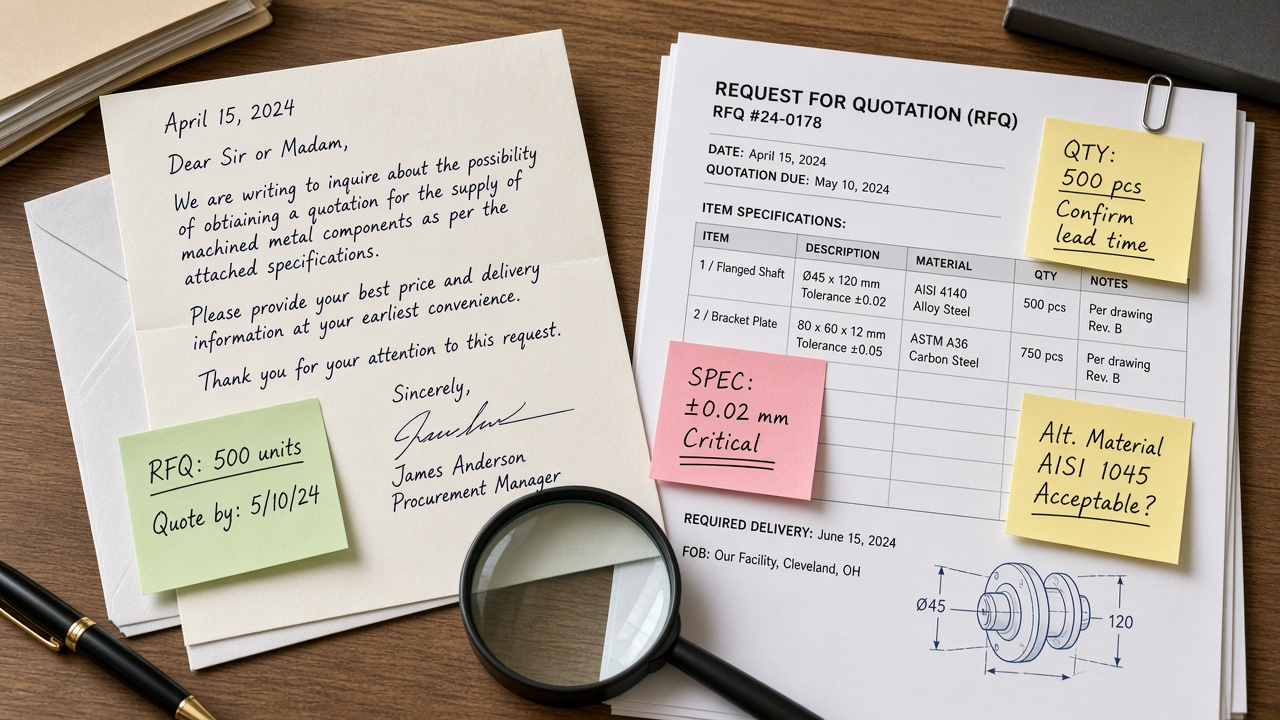 April 15, 2024
Dear Sir or Madam,
We are writing to inquire about the possibility
of obtiaining a quotation for the supply of
machined metal components as per the
attached specifications.
Please provide your best price and delivery
information at your earliest convenience.
Thank you for your attention to this request.
Sincerely,
James Anderson
Procurement Manager
RFQ: 500 units
Quote by: 5/10/24
REQUEST FOR QUOTATION (RFQ)
RFQ #24-0178
DATE: April 15, 2024
QUOTATION DUE: May 10, 2024
ITEM SPECIFICATIONS:
ITEM DESCRIPTION MATERIAL QTY NOTES
1 / Flanged Shaft Ø45 x 120 mm AISI 4140 500 pcs Per drawing
Tolerance ±0.02 Alloy Steel Rev. B
2 / Bracket Plate 80 x 60 x 12 mm ASTM A36 750 pcs Per drawing
Tolerance ±0.05 Carbon Steel Rev. B
QTY:
500 pcs
Confirm
lead time
SPEC:
±0.02 mm
Critical
Alt. Material
AISI 1045
Acceptable?
REQUIRED DELIVERY: June 15, 2024
FOB: Our Facility, Cleveland, OH
Ø45
120